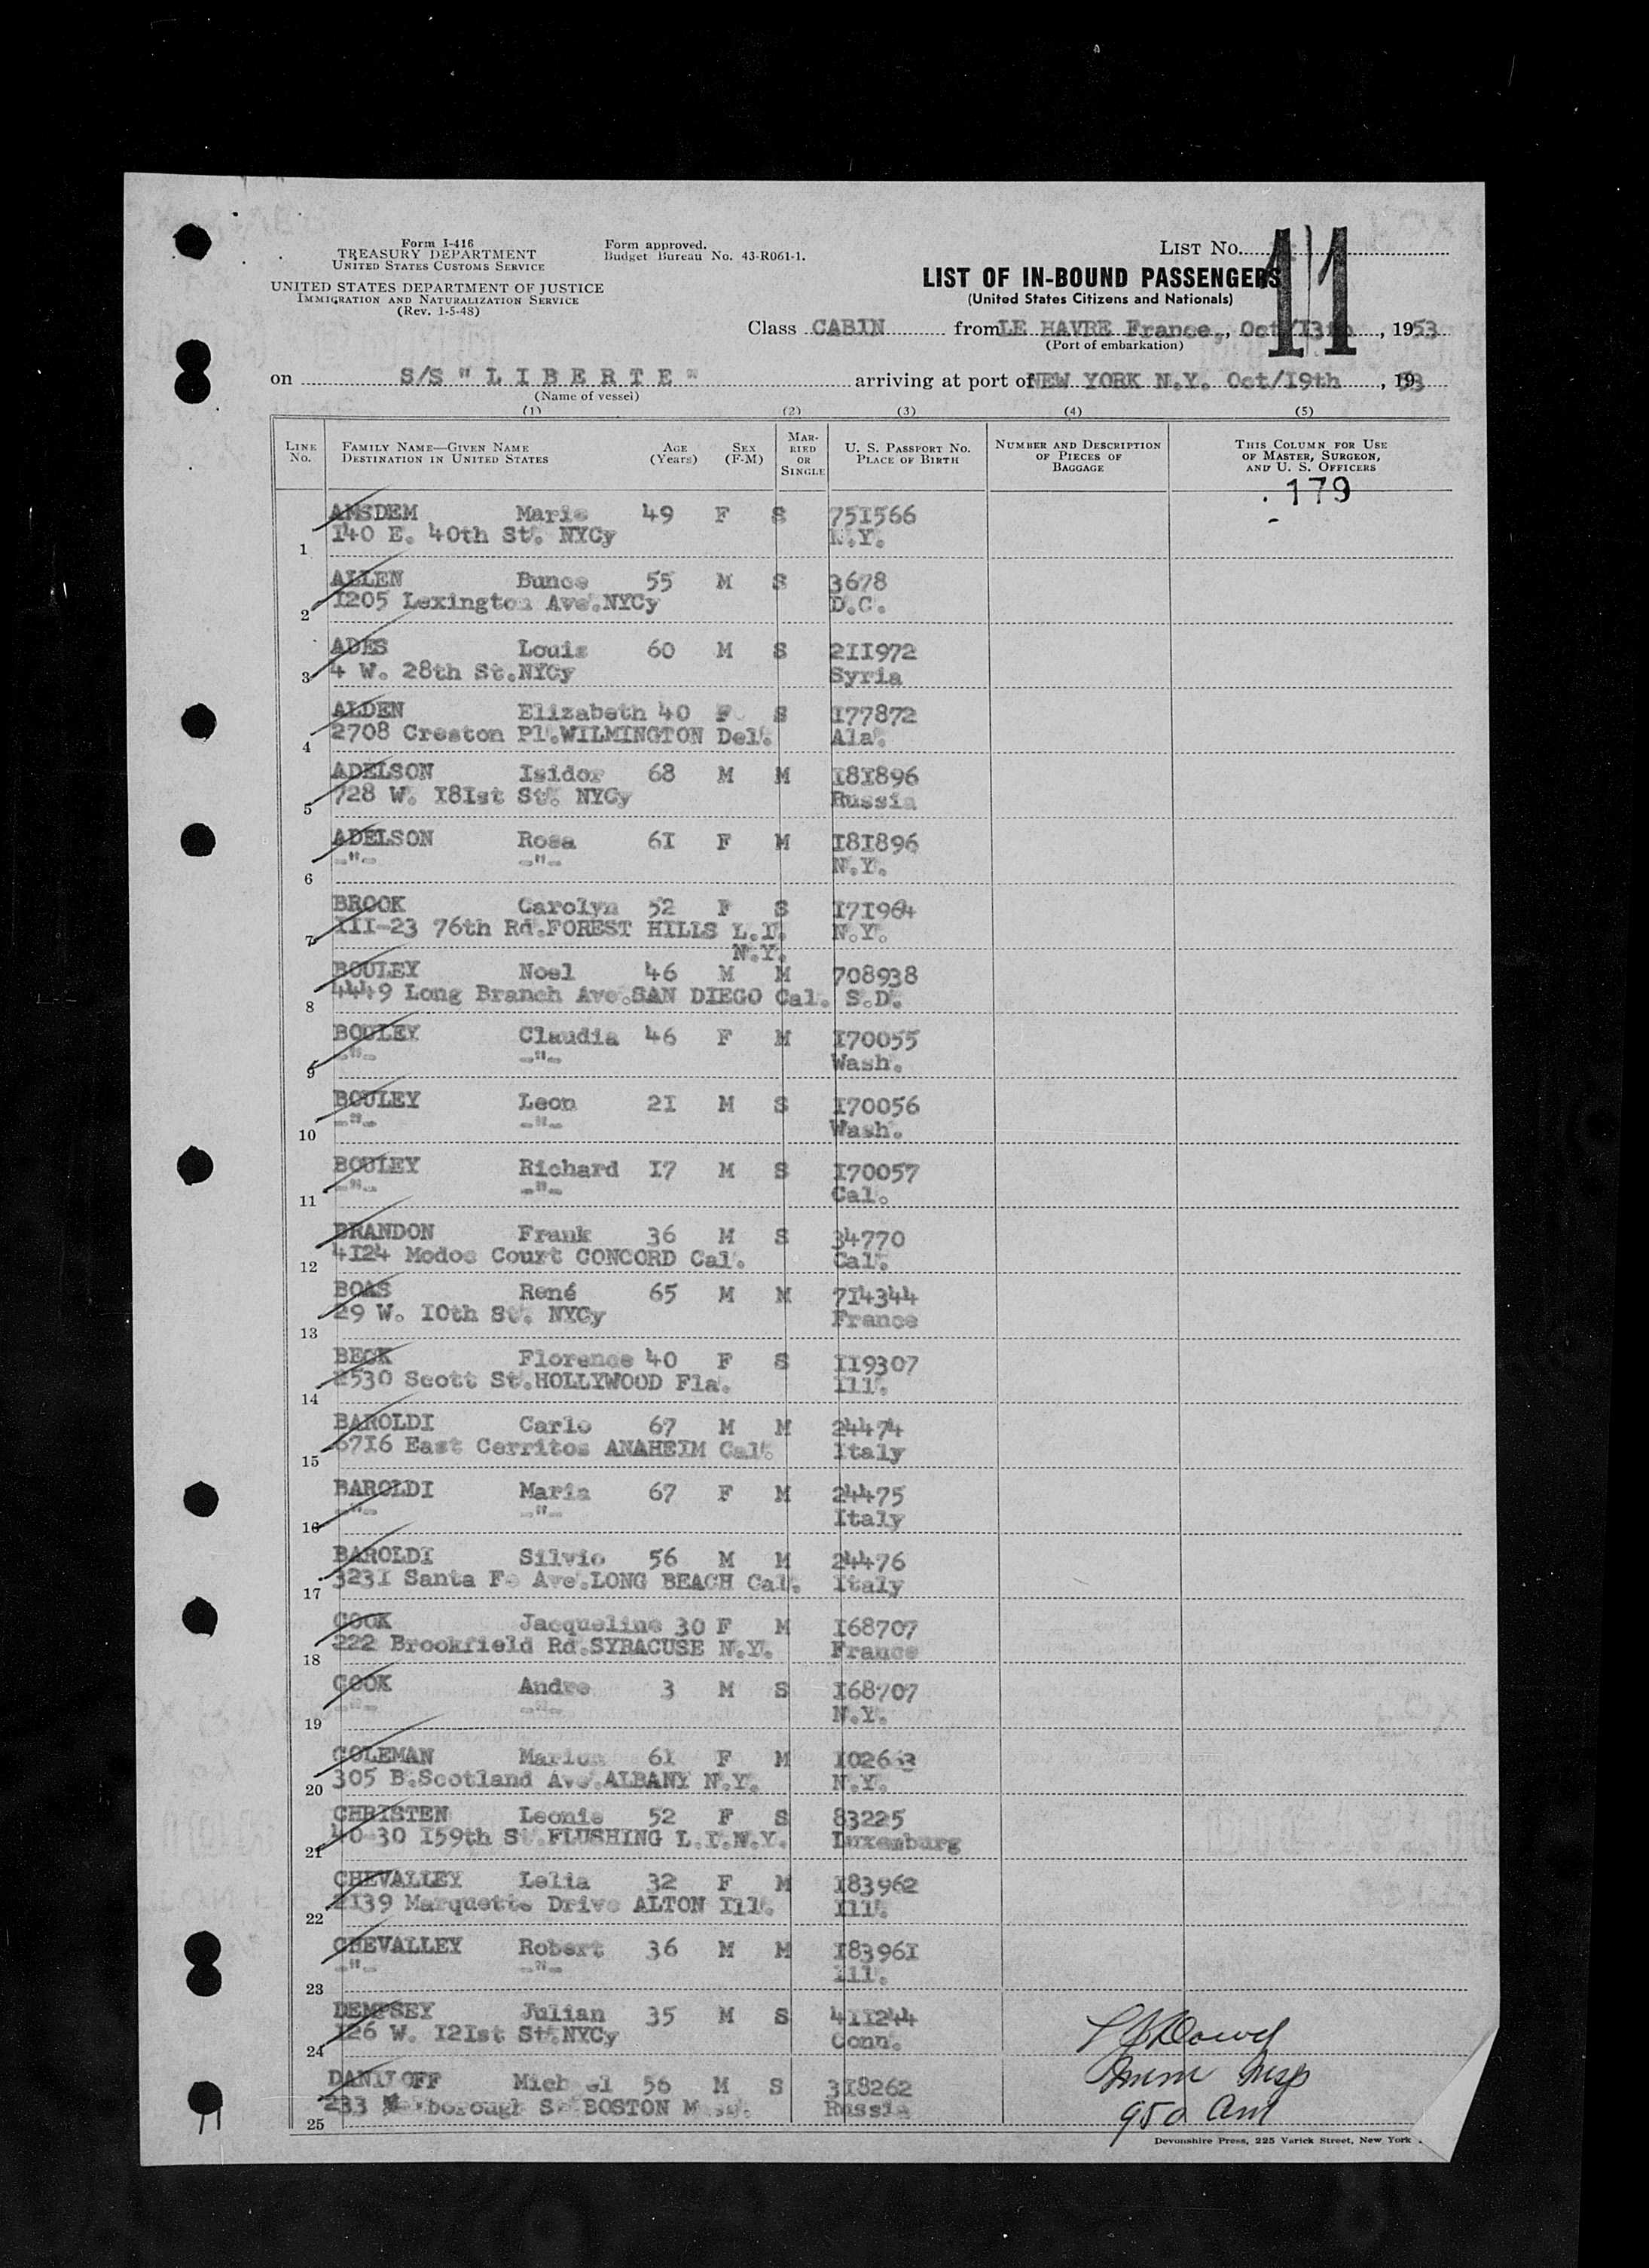 Form I-416
TREASURY DEPARTMENT
UNITED STATES CUSTOMS SERVICE
UNITED STATES DEPARTMENT OF JUSTICE
IMMIGRATION AND NATURALIZATION SERVICE
(Rev. 1-5-48)
Form approved.
Budget Bureau No. 43-R061-1.
LIST No. 11
LIST OF IN-BOUND PASSENGERS
(United States Citizens and Nationals)
Class CABIN from LE HAVRE France, Oct/13th, 1953
(Port of embarkation)
on S/S "LIBERTE" arriving at port of NEW YORK N.Y. Oct/19th, 1953
(Name of vessel)
(1) (2) (3) (4) (5)
LINE No. FAMILY NAME—GIVEN NAME DESTINATION IN UNITED STATES AGE (Years) SEX (F-M) MARRIED OR SINGLE U. S. PASSPORT No. PLACE OF BIRTH NUMBER AND DESCRIPTION OF PIECES OF BAGGAGE THIS COLUMN FOR USE OF MASTER, SURGEON, AND U. S. OFFICERS
179
AMSDEM Marie 49 F S 751566
1 140 E. 40th St. NYCy N.Y.
ALLEN Bunce 55 M S 3678
2 1205 Lexington Ave.NYCy D.C.
ADES Louis 60 M S 211972
3 4 W. 28th St.NYCy Syria
ALDEN Elizabeth 40 F S 177872
4 2708 Creston Pl.WILMINGTON Del. Ala.
ADELSON Isidor 68 M M 181896
5 728 W. 181st St. NYCy Russia
ADELSON Rosa 61 F M 181896
6 -"- -"- N.Y.
BROOK Carolyn 52 F S 171964
7 111-23 76th Rd.FOREST HILLS L.I. N.Y.
N.Y.
BOULEY Noel 46 M M 708938
8 4449 Long Branch Ave.SAN DIEGO Cal. S.D.
BOULEY Claudia 46 F M 170055
9 -"- -"- Wash.
BOULEY Leon 21 M S 170056
10 -"- -"- Wash.
BOULEY Richard 17 M S 170057
11 -"- -"- Cal.
BRANDON Frank 36 M S 34770
12 4124 Modos Court CONCORD Cal. Cal.
BOAS René 65 M M 714344
13 29 W. 10th St. NYCy France
BECK Florence 40 F S 119307
14 2530 Scott St.HOLLYWOOD Fla. Ill.
BAROLDI Carlo 67 M M 24474
15 6716 East Cerritos ANAHEIM Cal. Italy
BAROLDI Maria 67 F M 24475
16 -"- -"- Italy
BAROLDI Silvio 56 M M 24476
17 3231 Santa Fe Ave.LONG BEACH Cal. Italy
COOK Jacqueline 30 F M 168707
18 222 Brookfield Rd.SYRACUSE N.Y. France
COOK Andre 3 M S 168707
19 -"- -"- N.Y.
COLEMAN Marion 61 F M
20 305 B.Scotland Ave.ALBANY N.Y. N.Y.
CHRISTEN Leonie 52 F S 83225
21 40-30 159th St.FLUSHING L.I.N.Y. Luxemburg
CHEVALLEY Lelia 32 F M 183962
22 2139 Marquette Drive ALTON Ill. Ill.
CHEVALLEY Robert 36 M M 183961
23 -"- -"- Ill.
DEMPSEY Julian 35 M S 411244
24 126 W. 121st St.NYCy Conn.
DANILOFF Michael 56 M S 318262
25 233 St BOSTON Mass. Russia
Imm Insp
950 Am
Devonshire Press, 225 Varick Street, New York